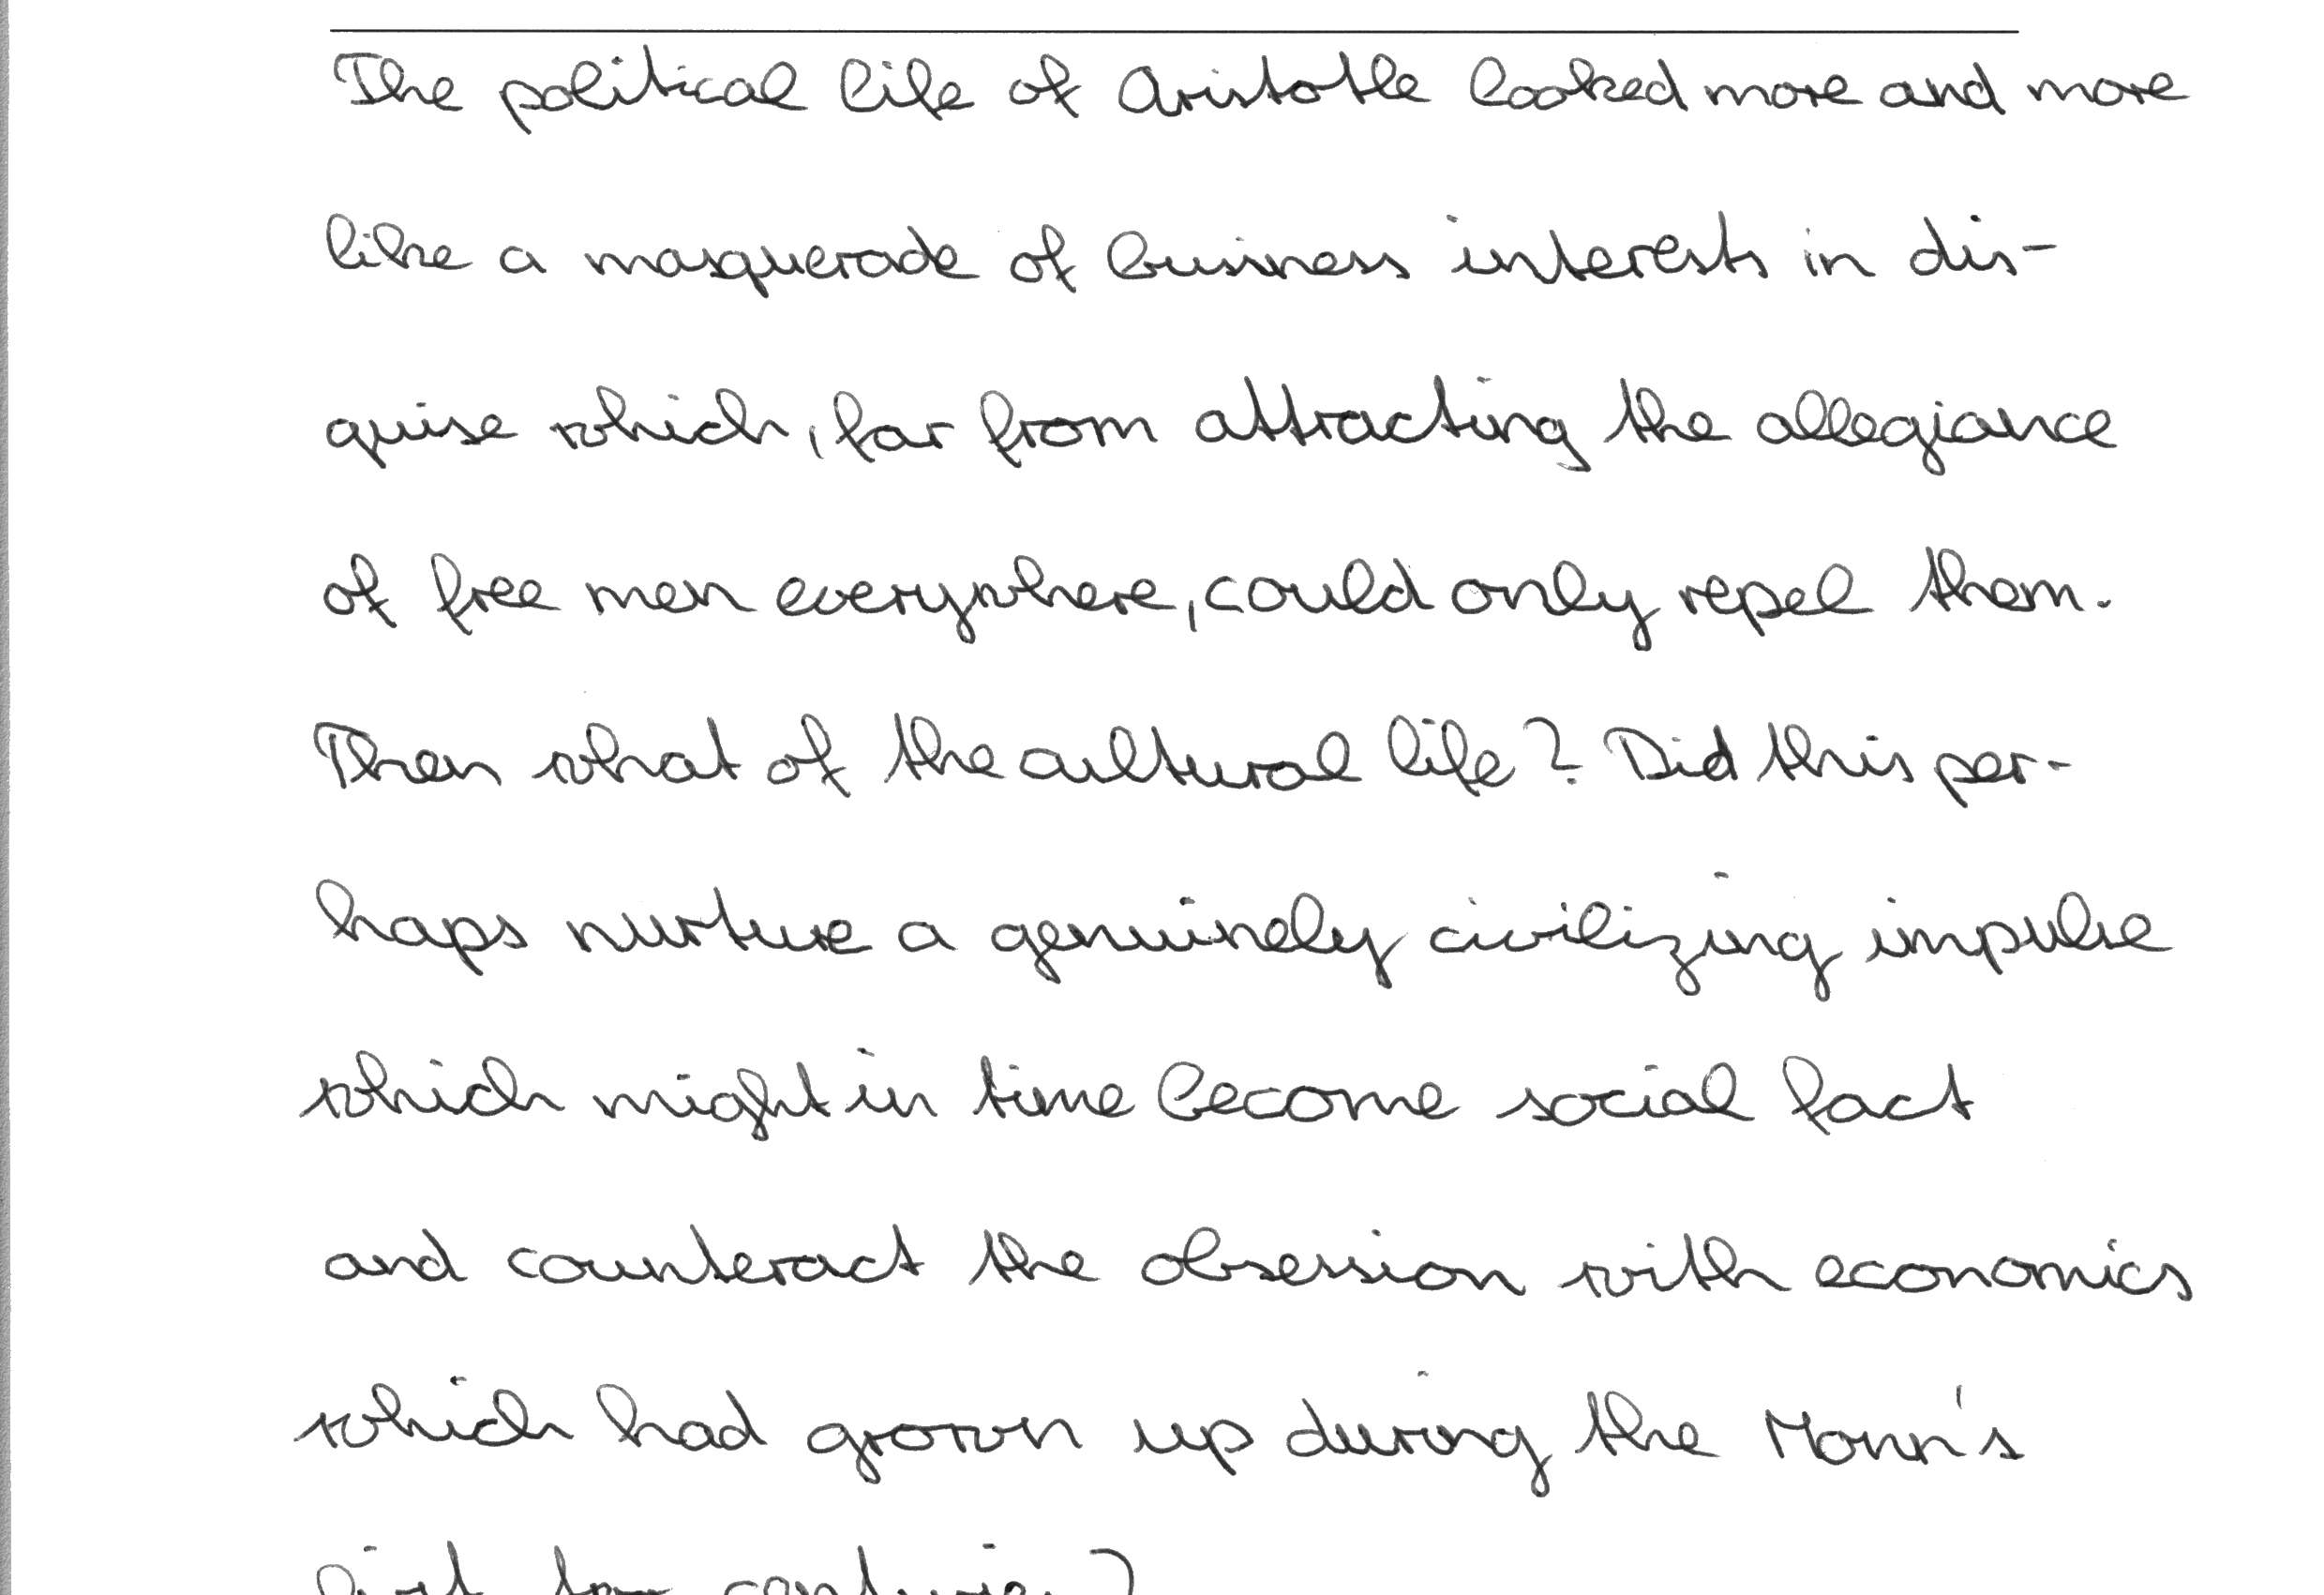 The political life of Aristotle looked more and more
like a masquerade of business interests in dis-
guise which, far from attracting the allegiance
of free men everywhere, could only repel them.
Then what of the cultural life? Did this per-
haps nurture a genuinely civilizing impulse
which might in time become social fact
and counteract the obsession with economics
which had grown up during the Moon's
first two centuries?